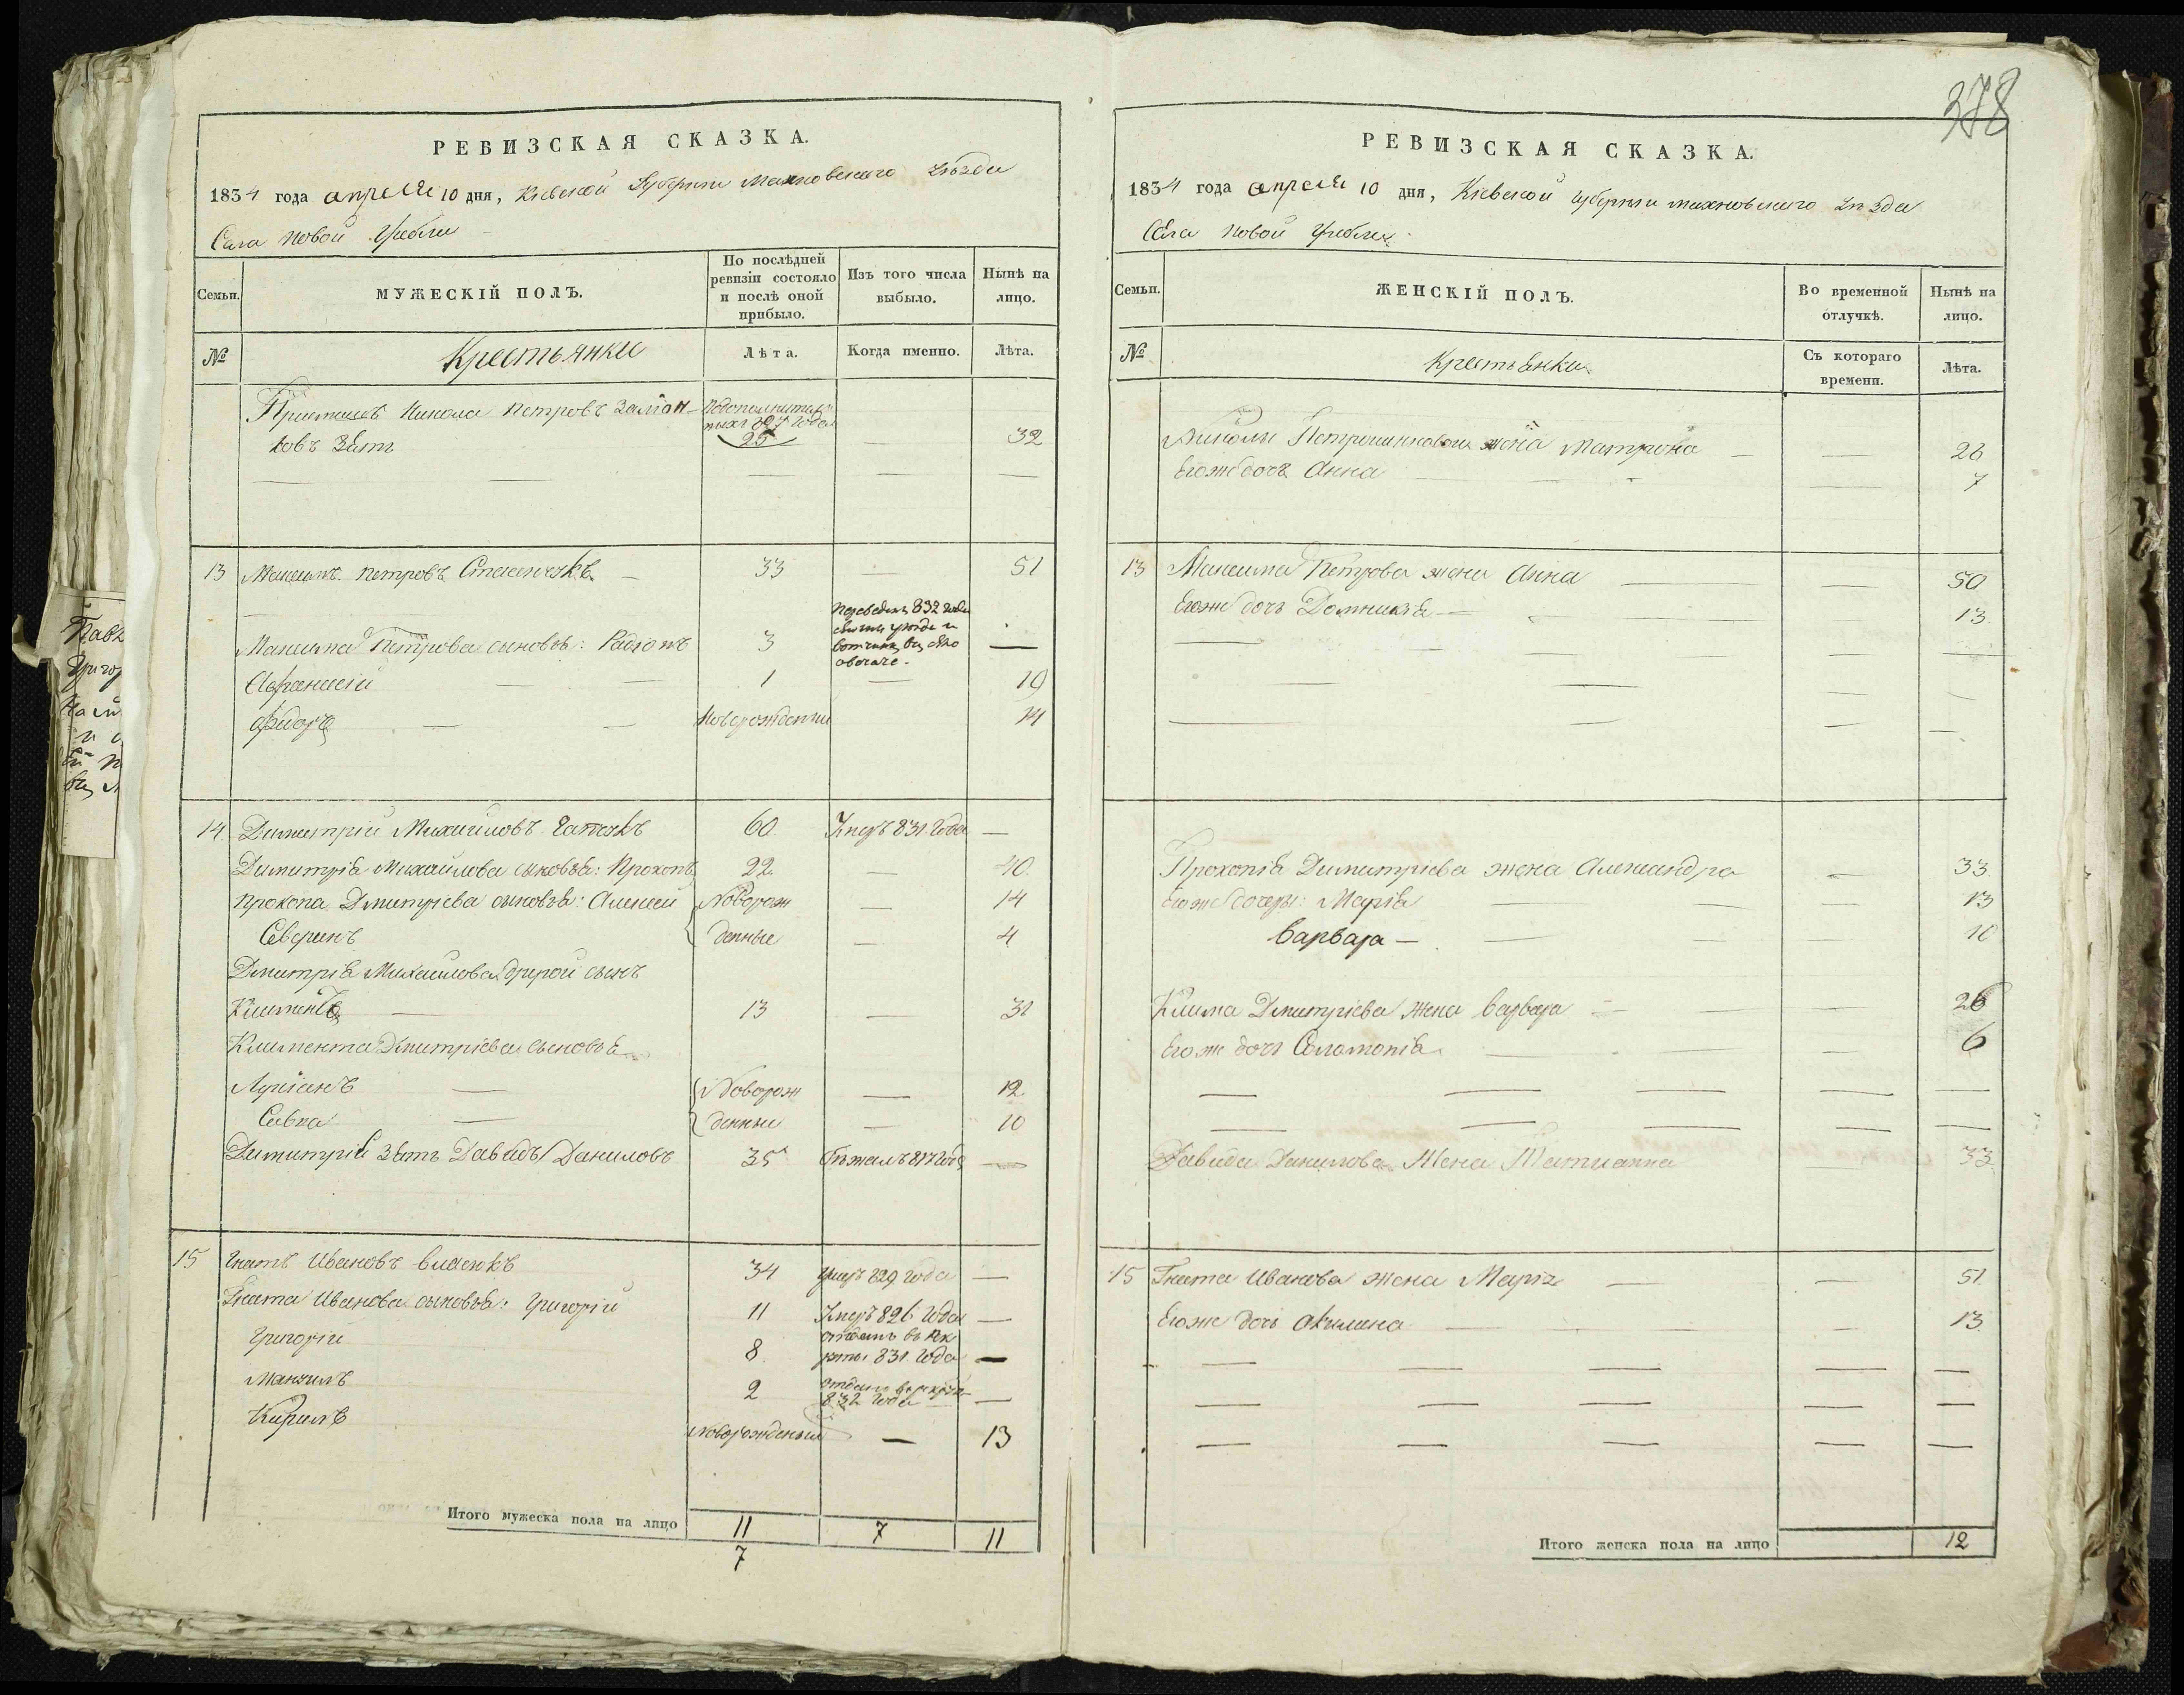 РЕВИЗСКАЯ СКАЗКА.
1834 года апреля 10 дня, Кіевской Губерніи Махновскаго уѣзда
Села Новой Гребли
Семьи.
МУЖЕСКІЙ ПОЛЪ.
По послѣдней ревизіи состояло и послѣ оной прибыло.
Изъ того числа выбыло.
Нынѣ на лицо.
№
Крестьянки
Лѣта.
Когда именно.
Лѣта.
Никола Петровъ
25
32
зять
13 Максимъ Петровъ 33 51
Максима Петрова сыновья: Радіонъ 3
Переведенъ 832 года
Афанасій 1 19
Фидоръ Новорожденный 14
14 Димитрій Михайловъ 60 Умеръ 831 года
Димитрія Михайлова сыновья: Прокопъ 22 40
Прокопа Дмитріева сыновья: Алексей Новорож 14
Северинъ денные 4
Дмитрія Михайлова другой сынъ
Климентъ 13 31
Климента Дмитріева сыновья
Лукіанъ Новорож 12
Савка денные 10
Димитрія зять Давидъ Даниловъ 35 Бежалъ 817 года
15 Гнатъ Ивановъ 34 умеръ 829 года
Гната Иванова сыновья: Григорій 11 Умеръ 826 года
Григорій 8 отданъ въ рек
руты 831 года
2 отданъ въ рекруты
832 года
Кирилъ Новорожденный 13
Итого мужеска пола на лицо 11 7 11
7
378
РЕВИЗСКАЯ СКАЗКА.
1834 года апреля 10 дня, Кіевской губерніи махновскаго уѣзда
Села Новой Гребли
Семьи.
ЖЕНСКІЙ ПОЛЪ.
Во временной отлучкѣ.
Нынѣ на лицо.
№
Крестьянки
Съ котораго времени.
Лѣта.
Николы жена Матрона 26
Егожъ дочь Анна 7
13 Максима Петрова жена Анна 50
Егоже дочь Домникія 13
Прокопія Димитріева жена Александра 33
Егоже дочеры: Марія 13
Варвара 10
Клима Дмитріева жена Варвара 26
Егоже дочь Соломонія 6
Давида Данилова жена Татианна 33
15 Гната Иванова жена Марія 51
Егоже дочь Акилина 13
Итого женска пола на лицо 12